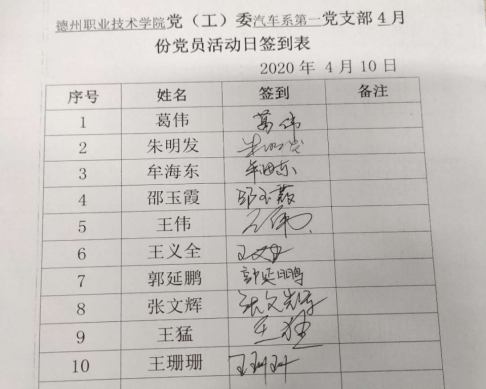 德州职业技术学院党（工）委汽车系第一党支部4月
份党员活动日签到表
2020 年 4 月 10 日
序号 姓名 签到 备注
1 葛伟 葛伟
2 朱明发 朱明发
3 牟海东 牟海东
4 邵玉霞 邵玉霞
5 王伟 王伟
6 王义全 王义全
7 郭延鹏 郭延鹏
8 张文辉 张文辉
9 王猛 王猛
10 王珊珊 王珊珊